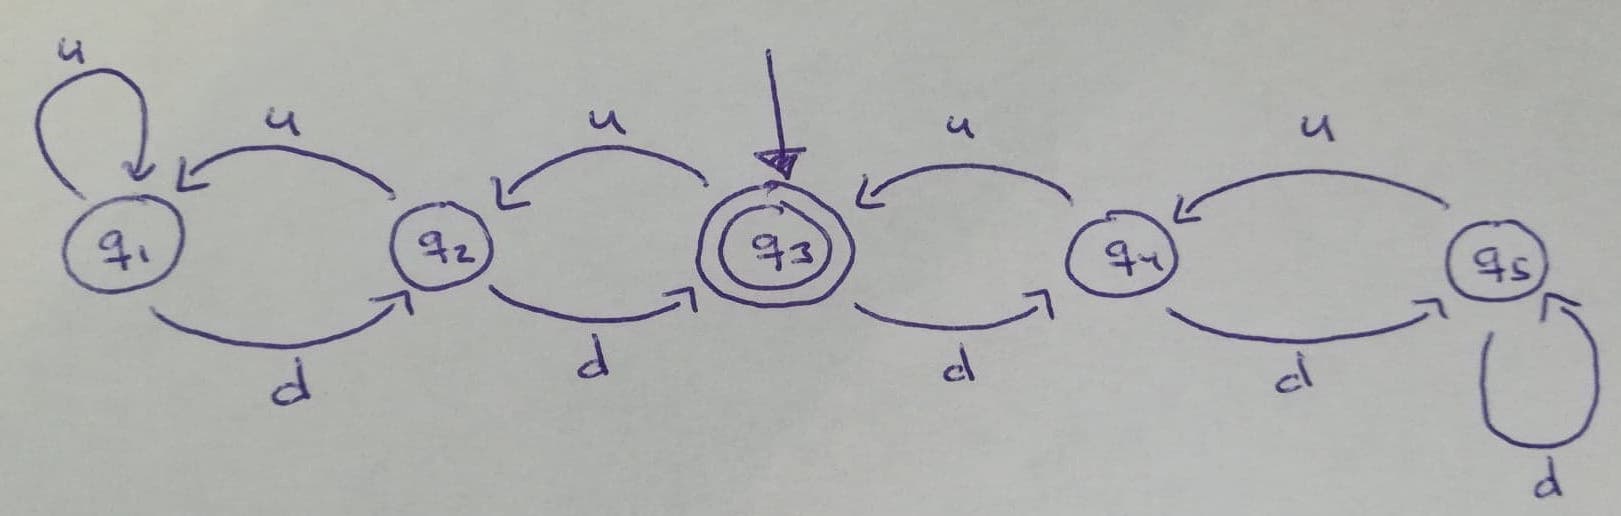 u
u u u u
q1 q2 q3 q4 q5
d d d d
d